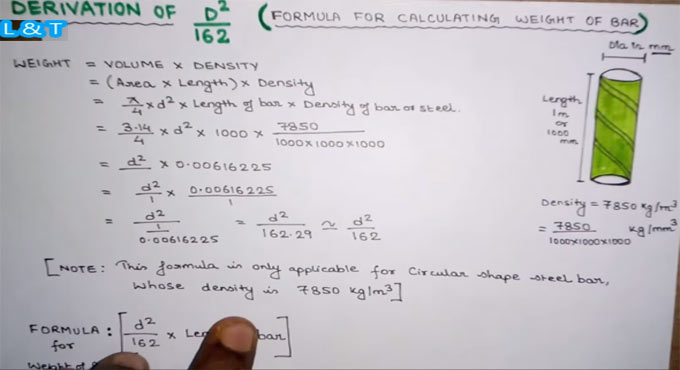 DERIVATION OF D²/162 (FORMULA FOR CALCULATING WEIGHT OF BAR)
L & T
WEIGHT = VOLUME × DENSITY
= (Area × Length) × Density
= π/4 × d² × Length of bar × Density of bar or steel.
= 3.14/4 × d² × 1000 × 7850/1000×1000×1000
= d² × 0.00616225
= d²/1 × 0.00616225/1
= d²/1/0.00616225 = d²/162.29 ≃ d²/162
Dia in mm
Length
1m
or
1000
mm
Density = 7850 kg/m³
= 7850/1000×1000×1000 kg/mm³
[NOTE: This formula is only applicable for Circular shape steel bar,
whose density is 7850 kg/m³]
FORMULA : [d²/162 × bar]
for
Weight of